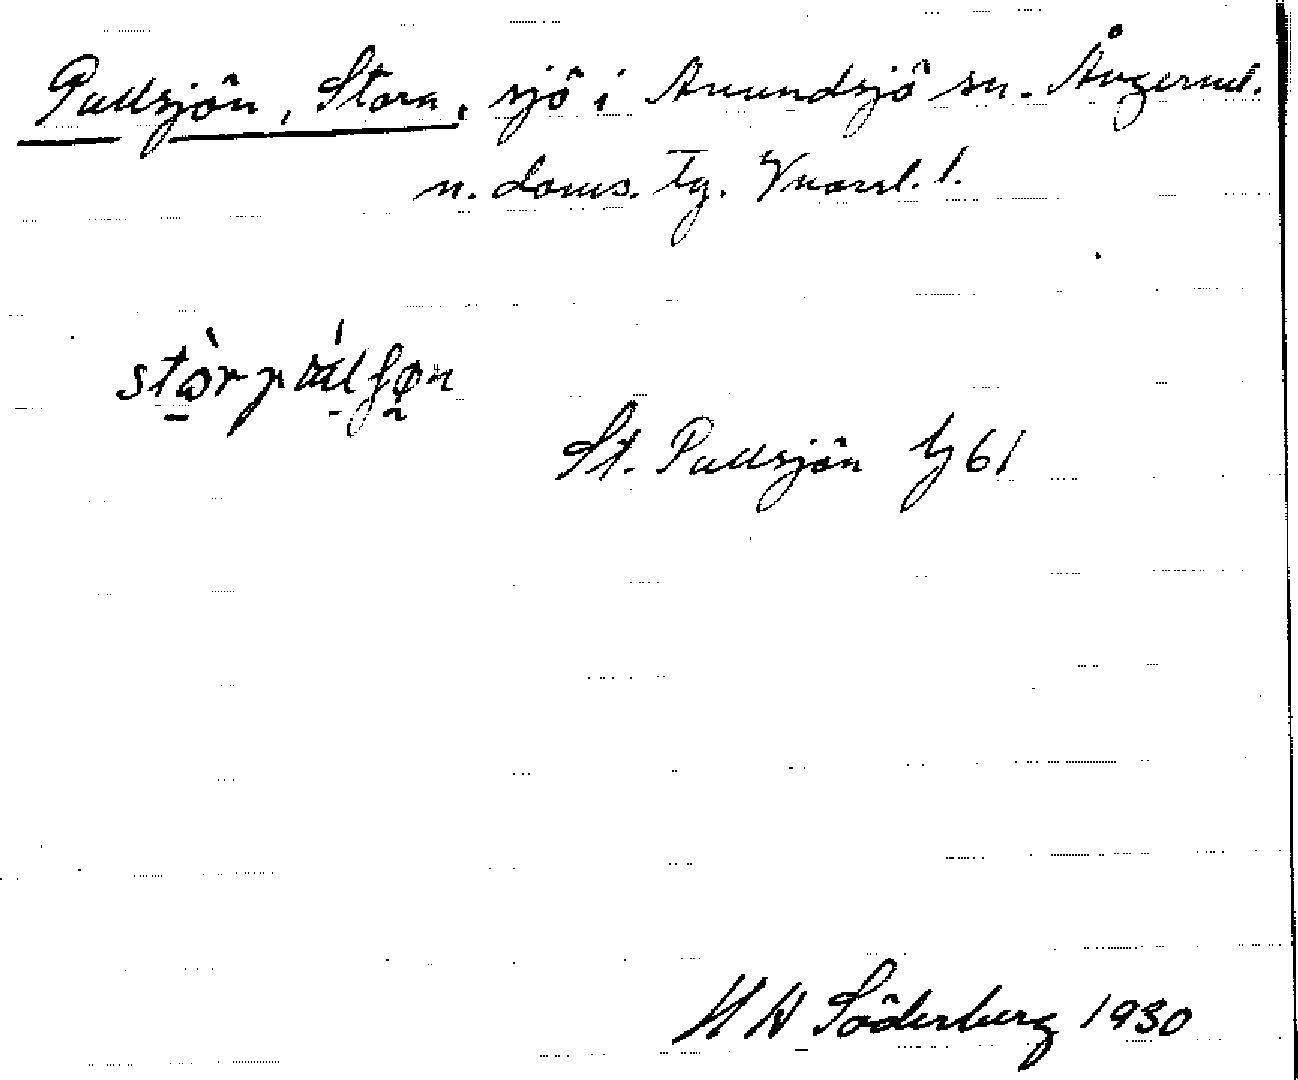 Pallsjön, Stora, sjö i Anundsjö sn. Ångerml.
n. doms. Tg. Vnorrl. l.
stòrpálʃøn
St. Pallsjön Gj 61
H W Söderberg 1930